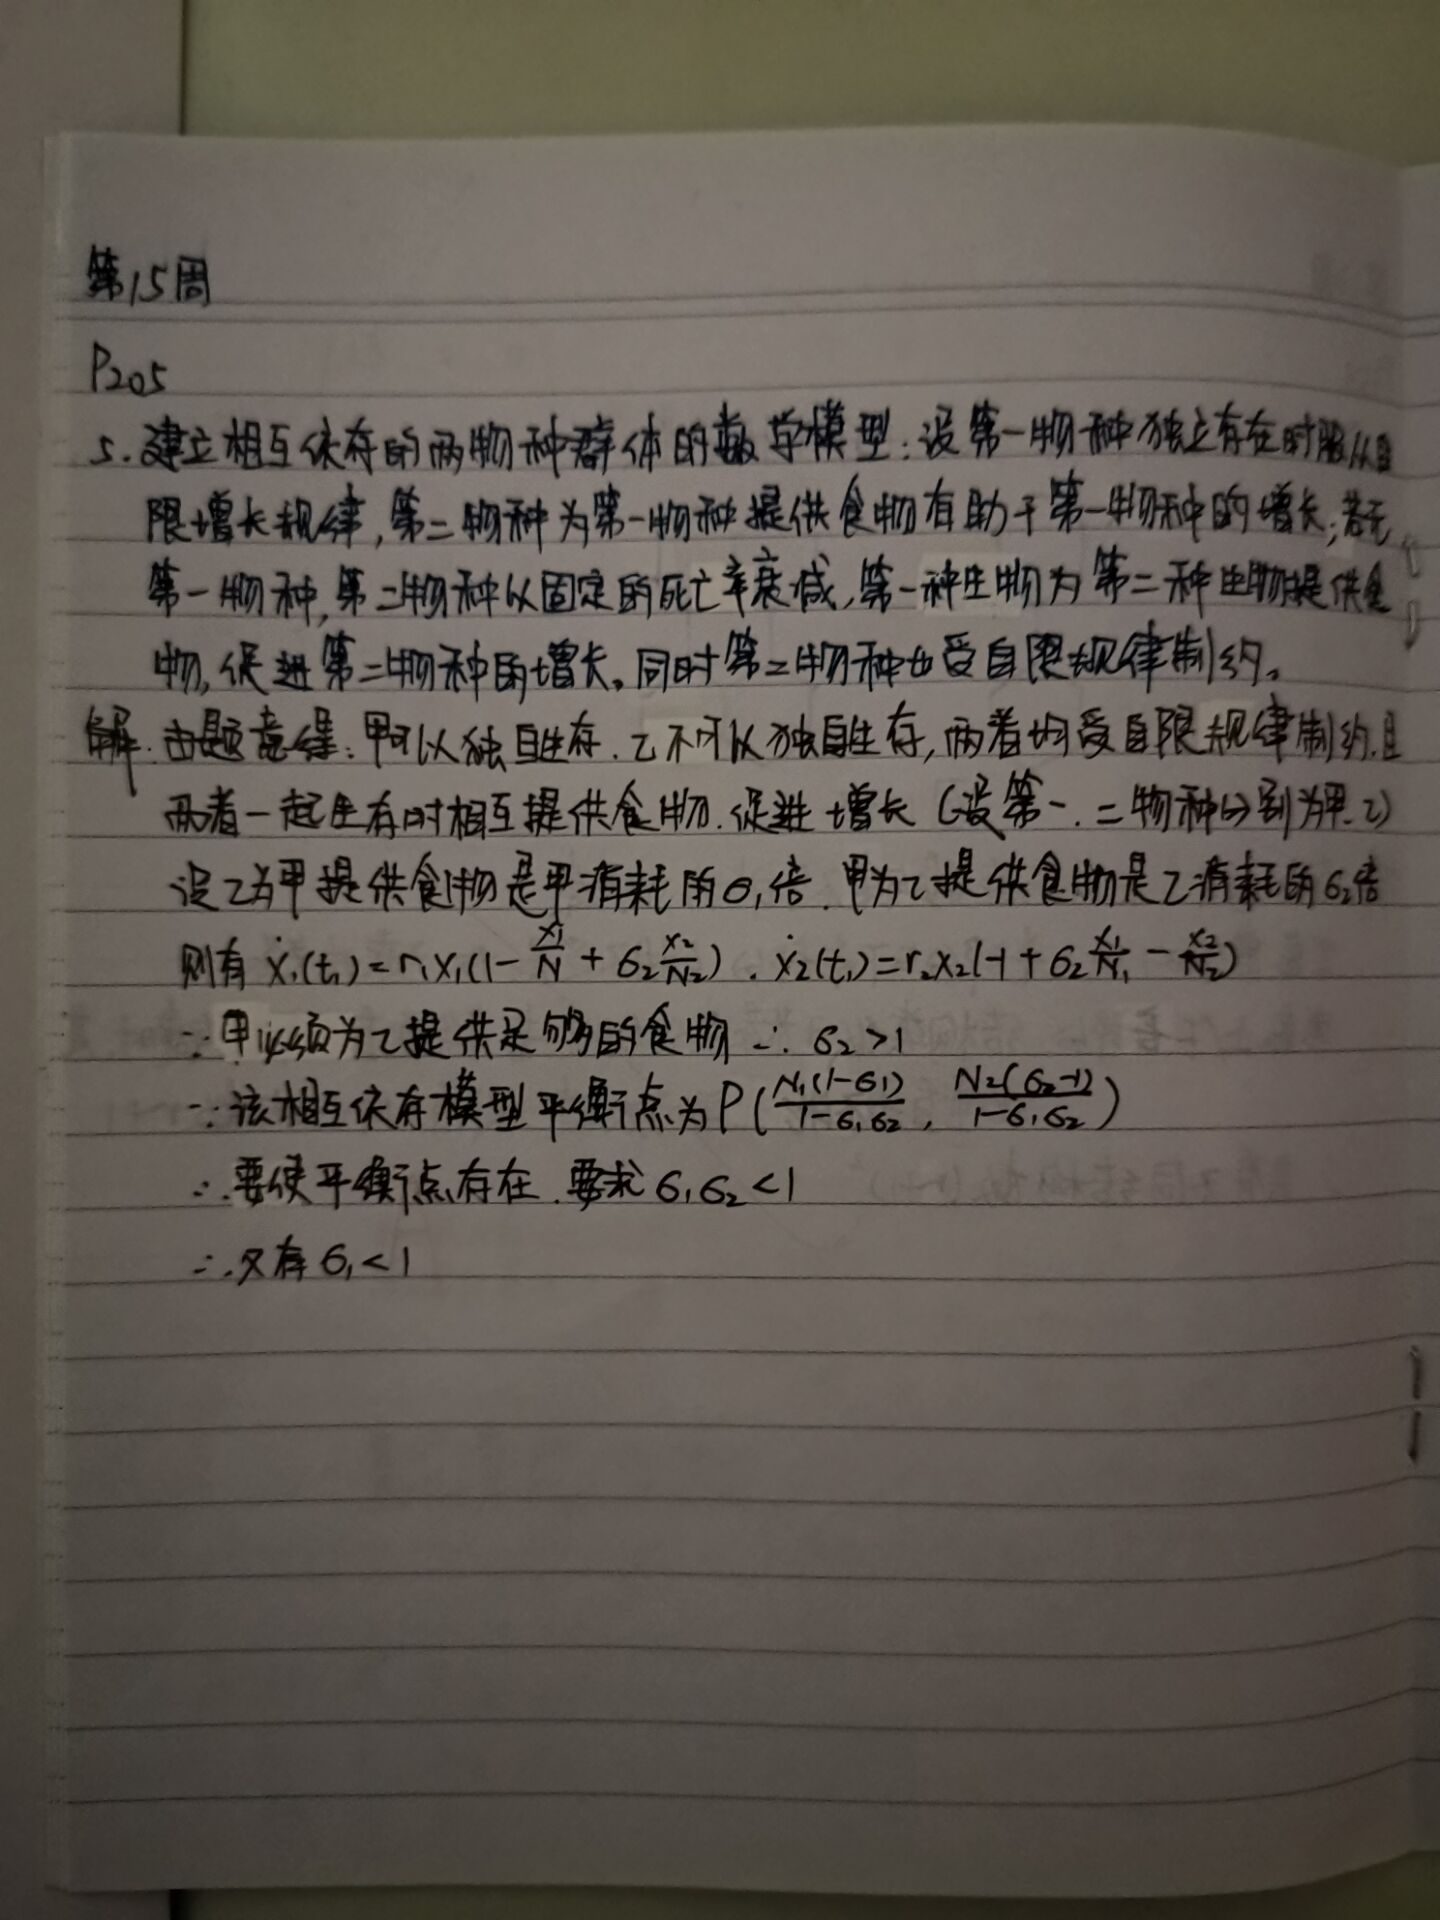 第15周
P205
5.建立相互依存的两物种群体的数学模型:设第一物种独立存在时服从自
限增长规律,第二物种为第一物种提供食物有助于第一物种的增长;若无
第一物种,第二物种以固定的死亡率衰减,第一种生物为第二种生物提供食
物,促进第二物种的增长。同时第二物种也受自限规律制约。
解:由题意得:甲可以独自生存.乙不可以独自生存,两者均受自限规律制约.且
两者一起生存时相互提供食物.促进增长(设第一.二物种分别为甲.乙)
设乙为甲提供食物是甲消耗的σ₁倍.甲为乙提供食物是乙消耗的σ₂倍
则有 ẋ₁(t₁)=r₁x₁(1-x₁/N+σ₂x₂/N₂).ẋ₂(t₁)=r₂x₂(-1+σ₂x₁/N₁-x₂/N₂)
∵甲必须为乙提供足够的食物 ∴σ₂>1
∵该相互依存模型平衡点为P(N₁(1-σ₁)/1-σ₁σ₂, N₂(σ₂-1)/1-σ₁σ₂)
∴要使平衡点存在.要求σ₁σ₂<1
∴又有σ₁<1